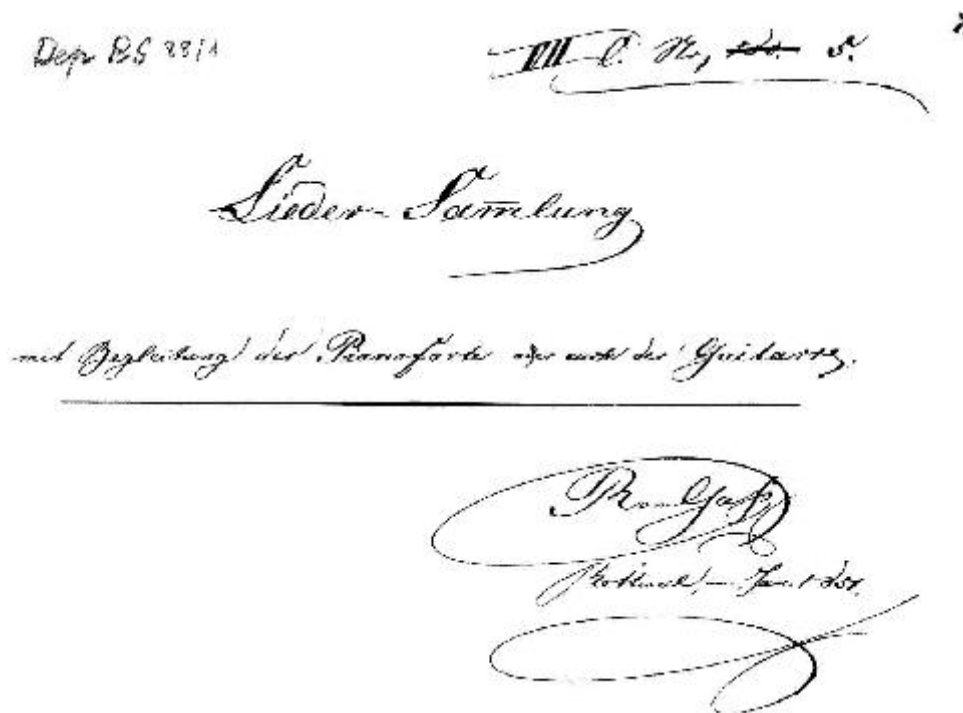 Dep BS 88/1
III C. No,
Lieder-Sam̅lung
mit Begleitung der Pianoforte oder auch der Guitarre.
Jan.